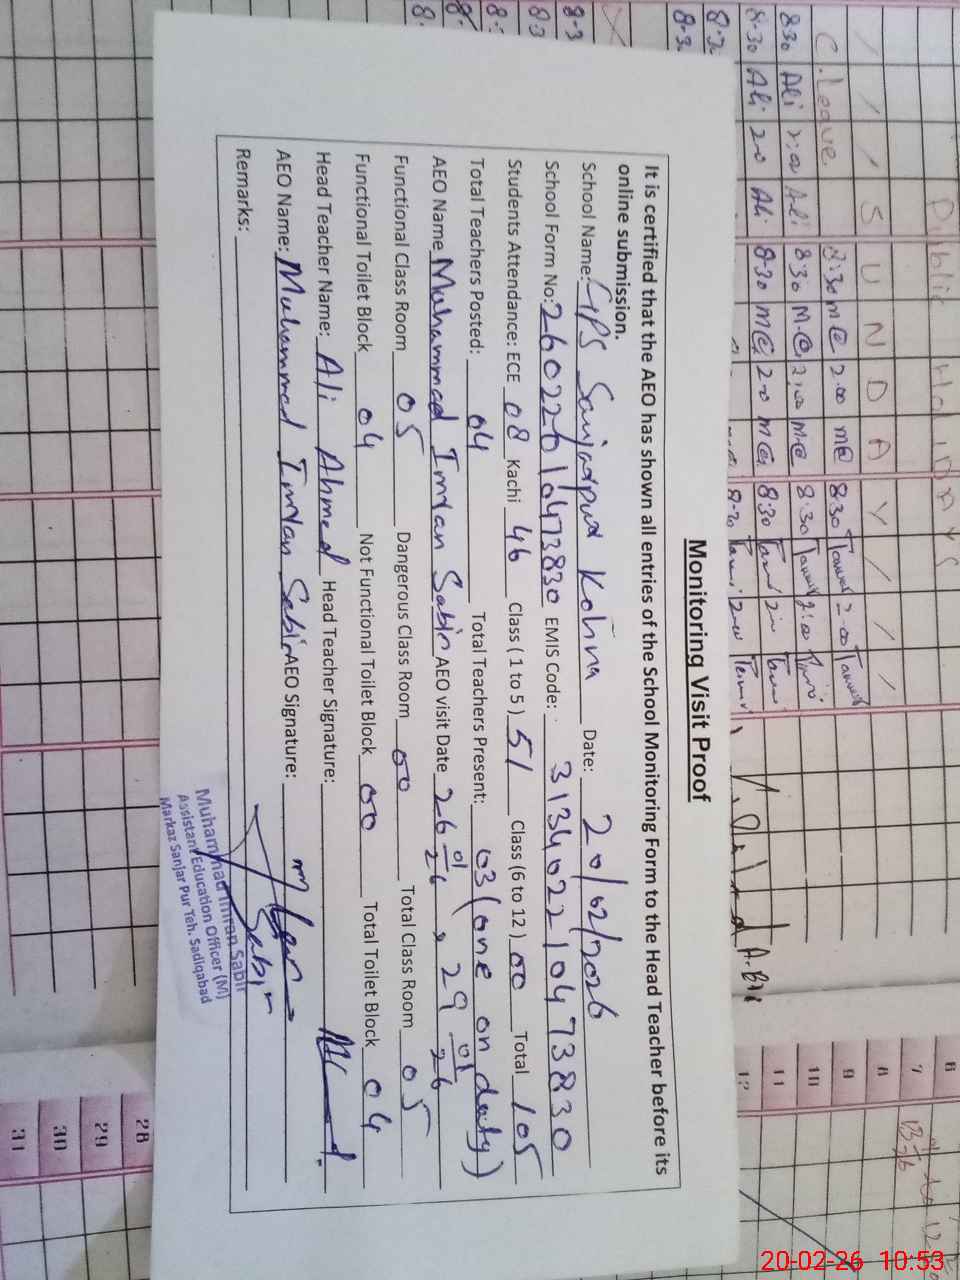 Monitoring Visit Proof
It is certified that the AEO has shown all entries of the School Monitoring Form to the Head Teacher before its
online submission.
School Name: GPS Sanjarpur Kohna Date: 20/02/2026
School Form No: 26022010473830 EMIS Code: 31340221047 3830
Students Attendance: ECE 08 Kachi 46 Class ( 1 to 5 ) 51 Class (6 to 12 ) 00 Total 105
Total Teachers Posted: 04 Total Teachers Present: 03 (one on duty)
AEO Name Muhammad Imran Sabir AEO visit Date 26 01 26 29 01 26
Functional Class Room 05 Dangerous Class Room 00 Total Class Room 05
Functional Toilet Block 04 Not Functional Toilet Block 00 Total Toilet Block 04
Head Teacher Name: Ali Ahmed Head Teacher Signature:
AEO Name: Muhammad Imran Sabir AEO Signature:
Remarks:
Muhammad Imran Sabir
Assistant Education Officer (M)
Markaz Sanjar Pur Teh. Sadiqabad
Public Holidays
/ / S U N D A Y / / /
C.Leave 8:30 m@ 2.00 m@ 8:30
8:30 Ali Ali 8:30 M.@ 2:00 M.@ 8:30
8:30 Ali 2.0 Ali 8:30 m@ 2.0 m@ 8:30
6
7
8
9
10
11
12
28
29
30
31
20-02-26 10:53